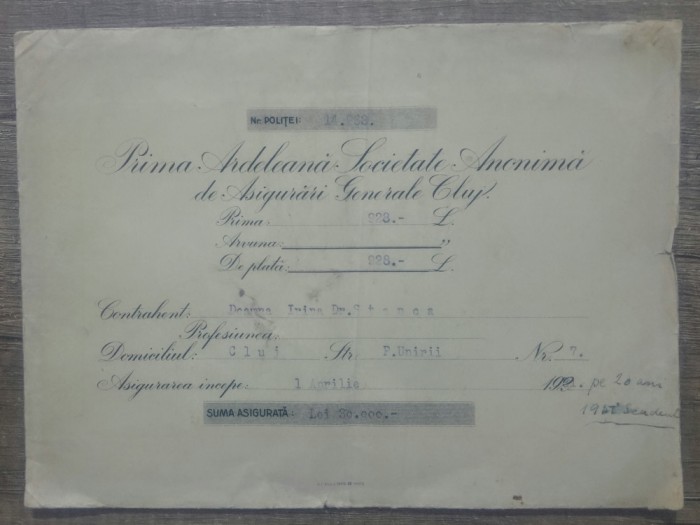 Nr. POLIȚEI:
Prima Ardeleană Societate Anonimă
de Asigurări Generale Cluj.
Prima: 928.- L.
Arvuna: "
De plată: 928.- L.
Contrahent: Doamna Dr. Stanca
Profesiunea:
Domiciliul: Cluj Str. P.Unirii Nr. 7.
Asigurarea începe: 1 Aprilie pe 20 ani
SUMA ASIGURATĂ: Lei 20.000.-